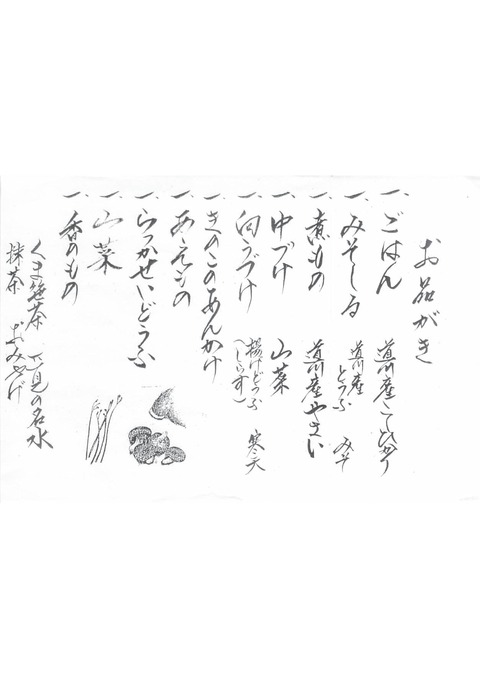 お品がき
一、ごはん 道川産こしひかり
一、みそしる 道川産とうふ みそ
一、煮もの 道川産やさい
一、中づけ 山菜
一、向うづけ 揚げどうふ(しらす) 寒天
一、きのこのあんかけ
一、あえもの
一、らっかせいどうふ
一、山菜
一、香のもの
くま笹茶 の名水
抹茶 おみやげ